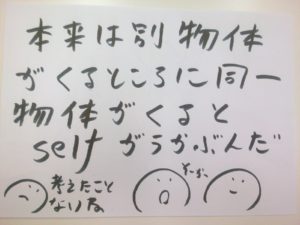 本来は別物体
がくるところに同一
物体がくると
self がうかぶんだ
考えたこと
ないね
そーか